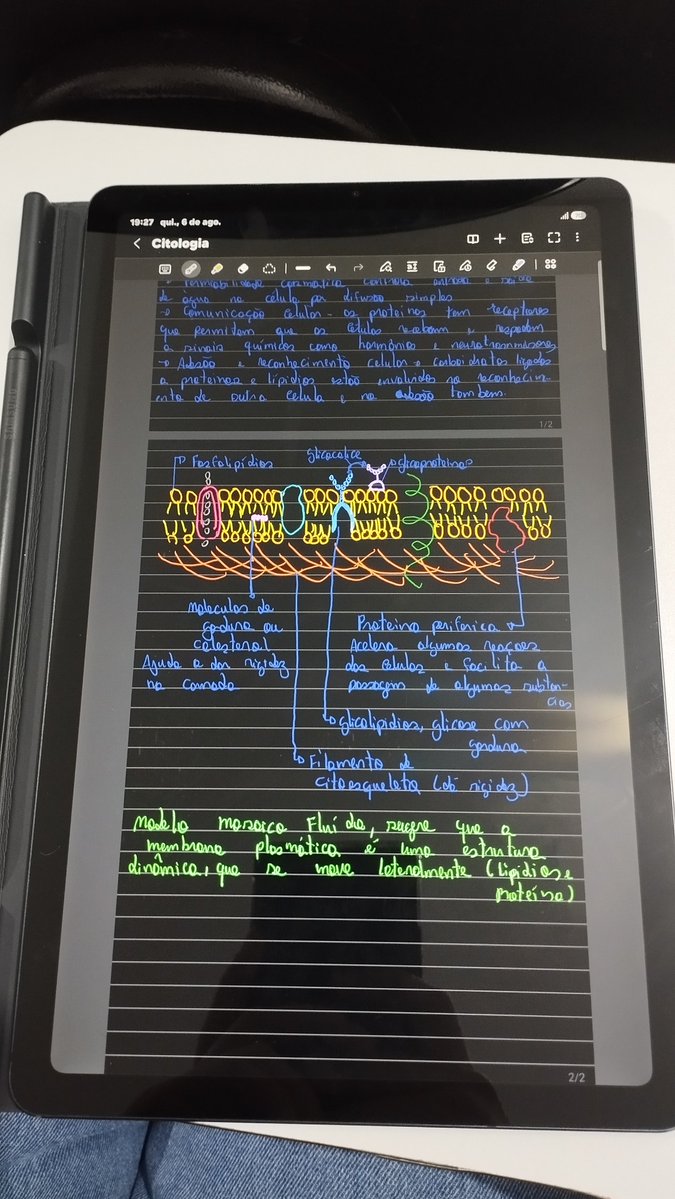 19:27 qui., 6 de ago.
Citologia
de água na celula por difusão simples
Comunicação celular - as proteinas tem receptores
que permitem que as células recebam e respodam
a sinais químicos como harmônios e neurotransmissores
Adesão e reconhecimento celular - carboidratos ligados
a proteinas e lípidios estão envolvidos no reconhecim-
ento de outra celula e na adesão tambem.
1/2
Fosfolipídios
glicocalice
glicoproteinas
moleculas de
gordura ou
colesterol
Ajuda a dar rigidez
na camada
Proteina periferica
Acelera algumas reações
das celulas e facilita a
passagem de algumas substan-
cias
glicolipidios, glicose com
gordura
Filamento de
citoesqueleto (dá rigidez)
modelo mosaico Fluído, sugere que a
membrana plasmática é uma estrutura
dinâmica, que se move lateralmente (lipidios e
proteína)
2/2